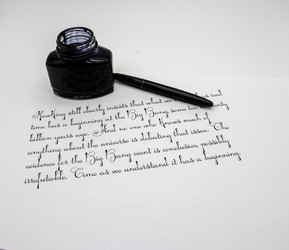 Hawking still clearly insists that what we
time has a beginning at the Big Bang some ten
billion years ago. And no one who knows much of
anything about the universe is debating that issue. The
evidence for the Big Bang event is conclusive, possibly
irrefutable. Time as we understand it has a beginning